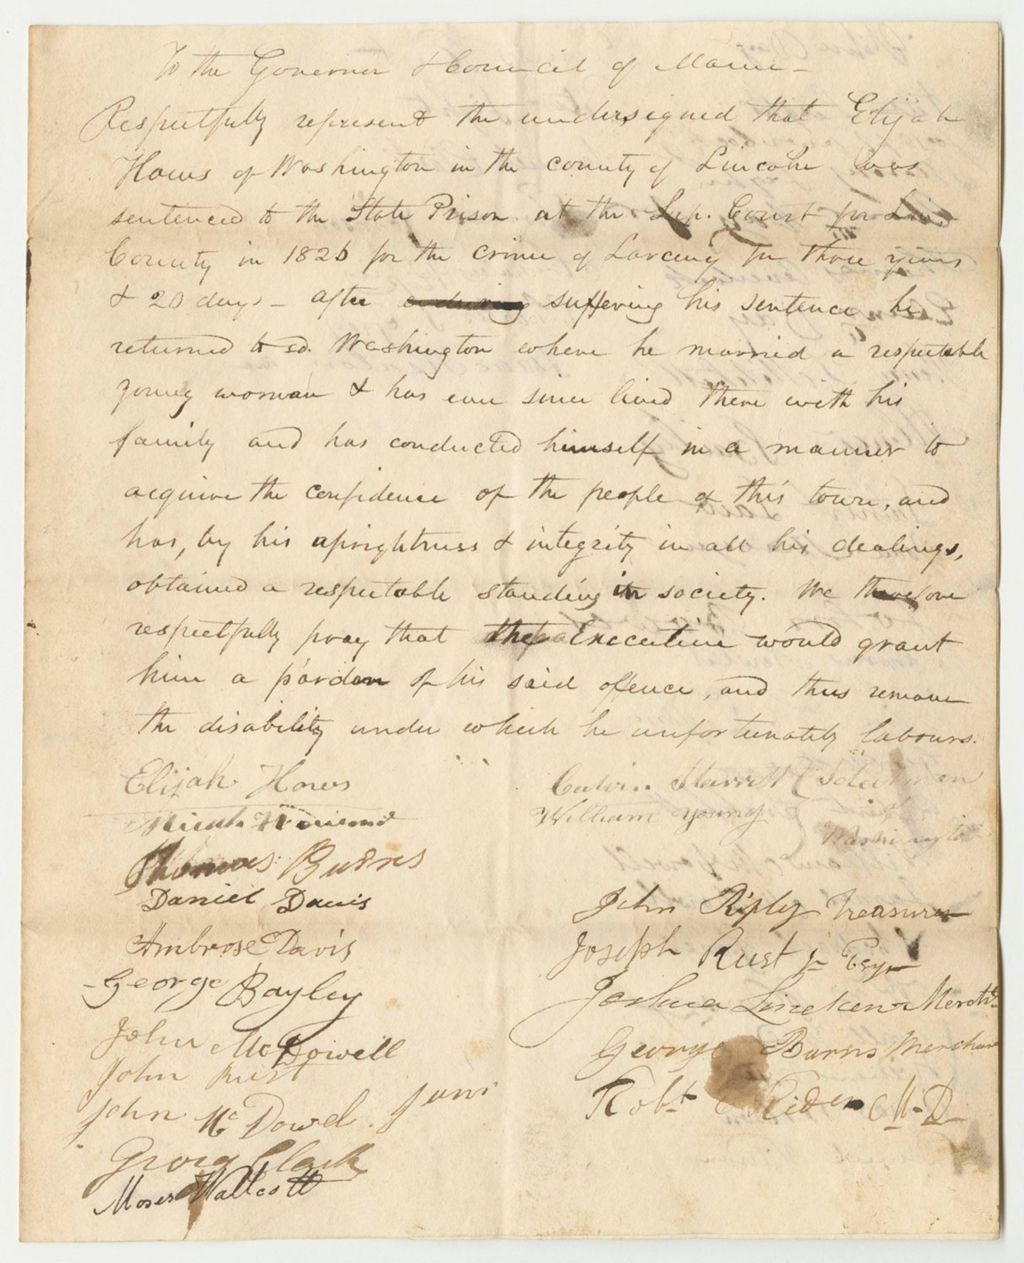 To the Governor & Council of Maine -
Respectfully represent the undersigned that Elijah
Hawes of Washington in the county of Lincoln was
sentenced to the State Prison at the Sup. Court for Lin.
County in 1826 for the crime of Larceny for three years
& 20 days - after suffering his sentence he
returned to sd. Washington where he married a respectable
young woman & has ever since lived there with his
family and has conducted himself in a manner to
acquire the confidence of the people of this town, and
has, by his uprightness & integrity in all his dealings,
obtained a respectable standing in society. We therefore
respectfully pray that the Executive would grant
him a pardon of his said offence, and thus remove
the disability under which he unfortunately labours.
Elijah Hawes
Thomas Burns
Daniel Davis
Ambrose Davis
George Bayley
John McDowell
John Rust
John McDowel Juni
George Clark
Moses Wallcott
Calvin Starrett Selectmen
William Young
Washington
John Riply Treasurer
Joseph Rust Jr Esqr
Joshua Lincken Mercht
George Burns Merchant
Robt Kiden M-D